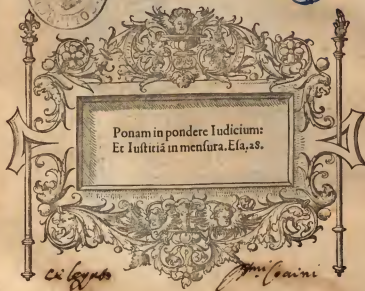 Ponam in pondere Iudicium:
Et Iustitiã in mensura. Esa. 28.